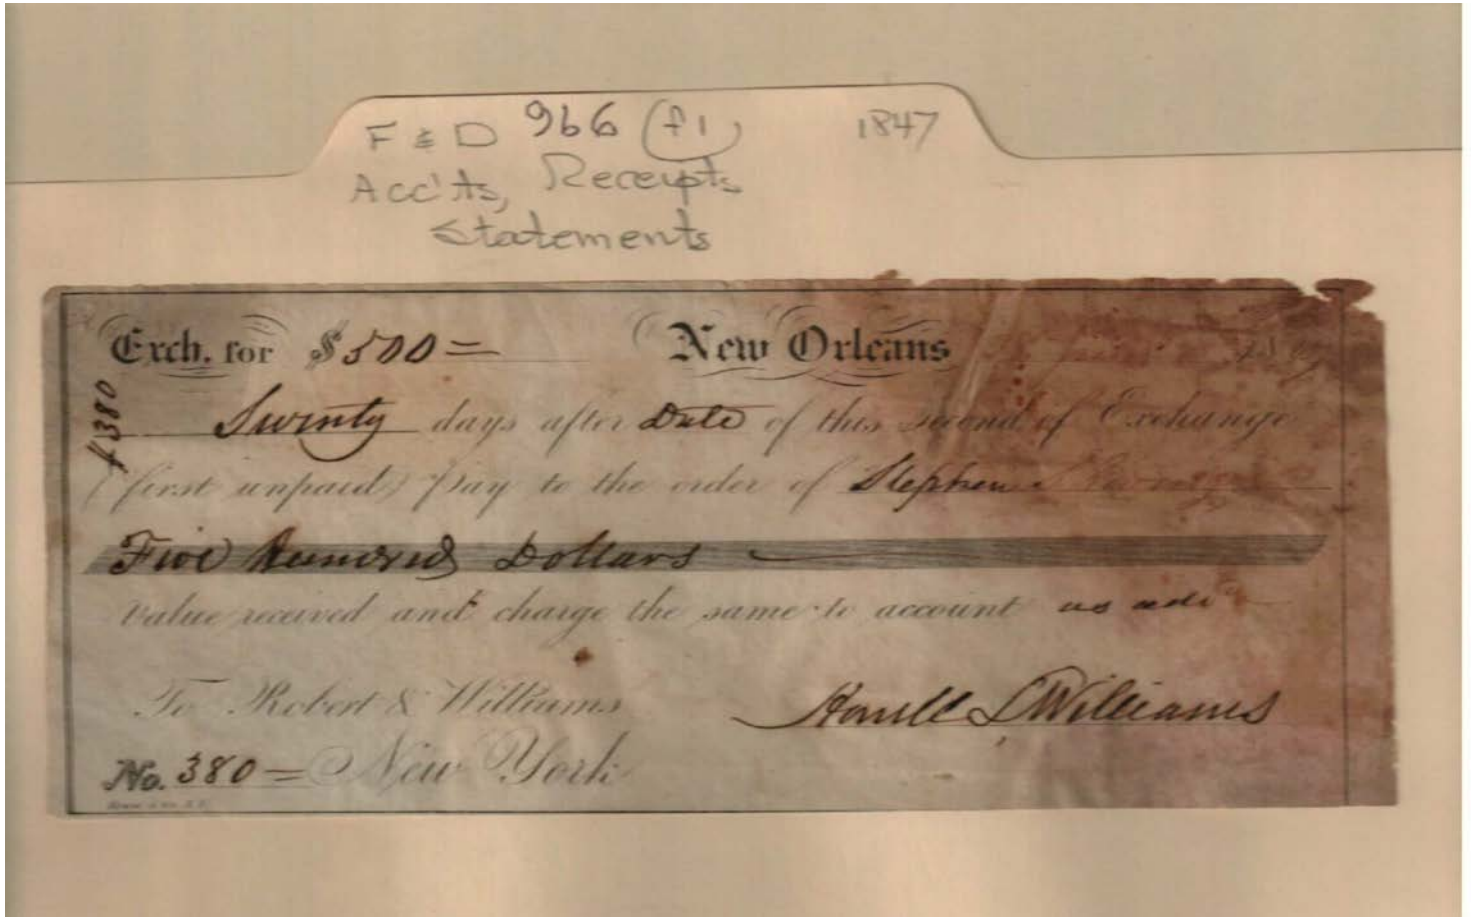 F & D 966 (f1) 1847
Acc'ts, Receipts
Statements
Exch. for $500= New Orleans
#380
Twenty days after Date of this second of Exchange
(first unpaid) Pay to the order of Stephen
Five Hundred Dollars
Value received and charge the same to account as adv
To Robert & Williams
Howell L Williams
No. 380= New York